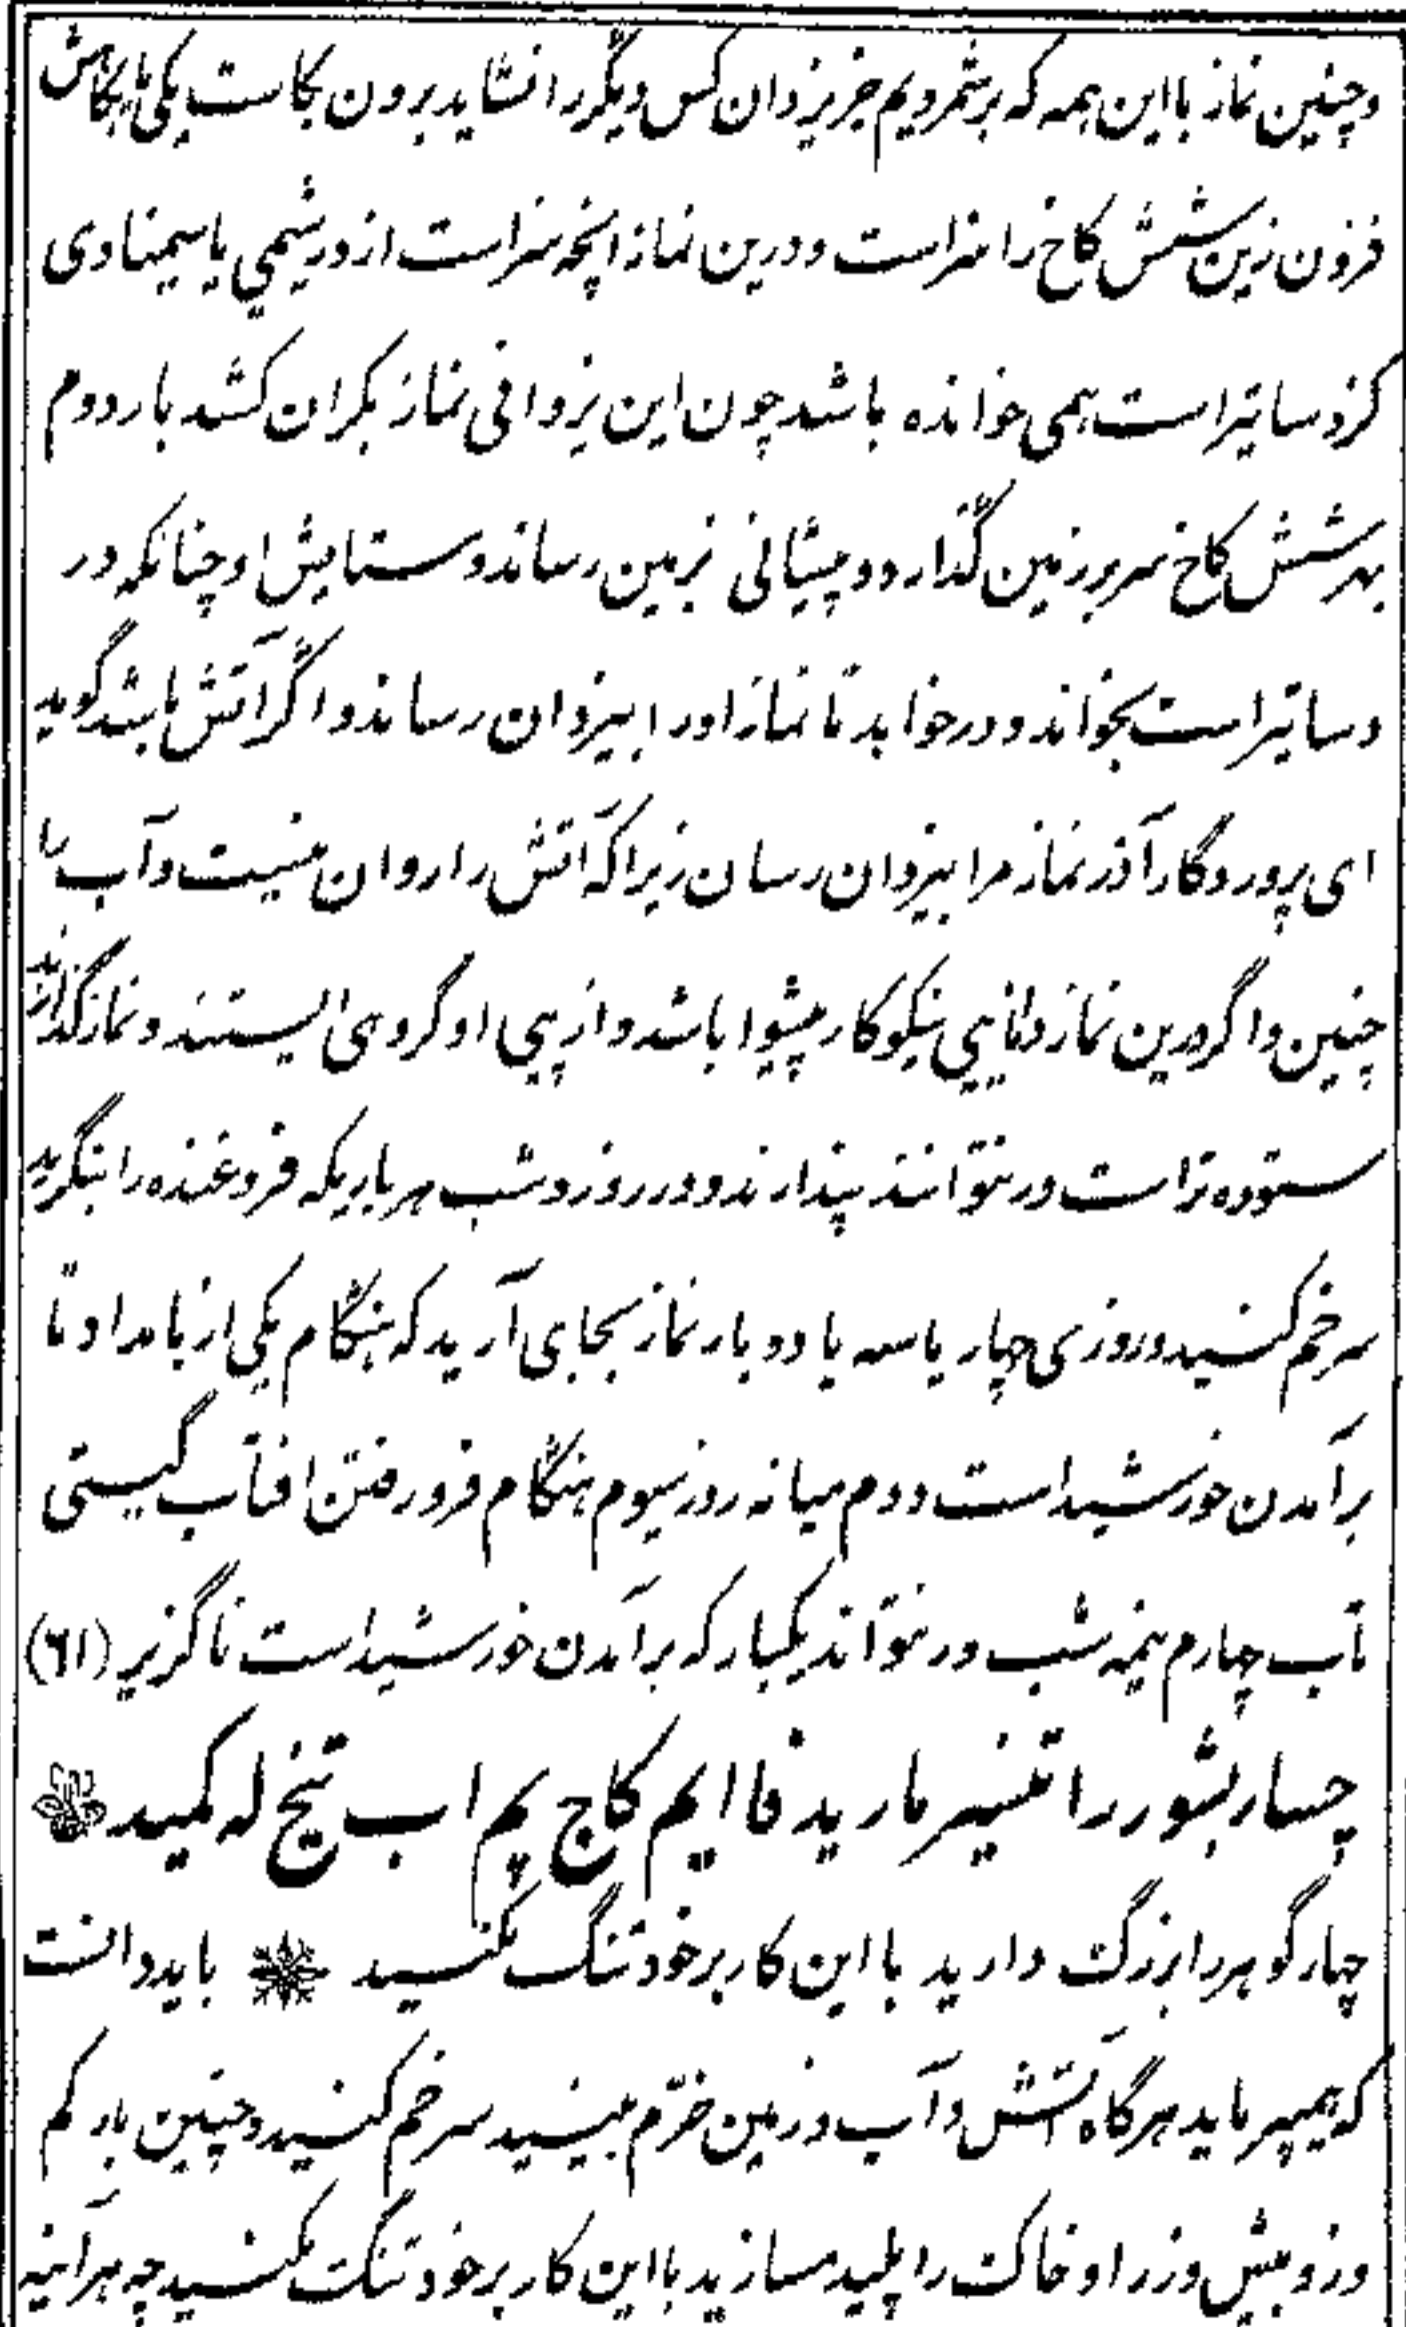 وچنین نماز بااین همه که برشمردیم جز یزدان کس دیگر را نشاید برون بکاست یکی پایکاهش
فزون زین شش کاخ را سزاست و درین نماز آنچه سزاست از ورشیم یا سیمنادی
کز دساتیر است همی خوانده باشد چون این یزدانی نماز بکران کشد بار دوم
بهر شش کاخ سر بر زمین گذارد و پیشانی بزمین رساند و ستایش او چنانکه در
دساتیر است بخواند و درخواهد تا نماز او را بیزدان رساند و اگر آتش باشد گوید
ای پروردگار آذر نماز مرا بیزدان رسان زیرا که آتش را روان نیست و آب را
چنین و اگر درین نماز دانایی نیکوکار پیشوا باشد و از پی او گروهی ایستند و نماز گذارند
ستوده تر است ور نتوانند پندارند و در روز و شب هر باریکه فروغنده را بنگرید
سر خم کنید و روزی چار یا سه یا دو بار نماز بجای آرید که هنگام یکی از بامداد تا
برآمدن خورشید است دوم میانه روز سیوم هنگام فرو رفتن افتاب گیستی
تاب چارم نیمه شب ور نتواند یکبار که برآمدن خورشید است ناگزیر (٦١)
چسار بشور را تفسیر مارید فا ایم کاج یم اب تنخ له کمید
چهار گوهر را بزرگ دارید با این کار بر خود تنگ مکنید باید دانست
که میپرماید هرگاه آتش و آب و زمین خرم بینید سر خم کنید و چنین باد کم
وزو بیش وزرا و خاک را پلید مسازید با این کار بر خود تنگ مکنید چه هرآینه